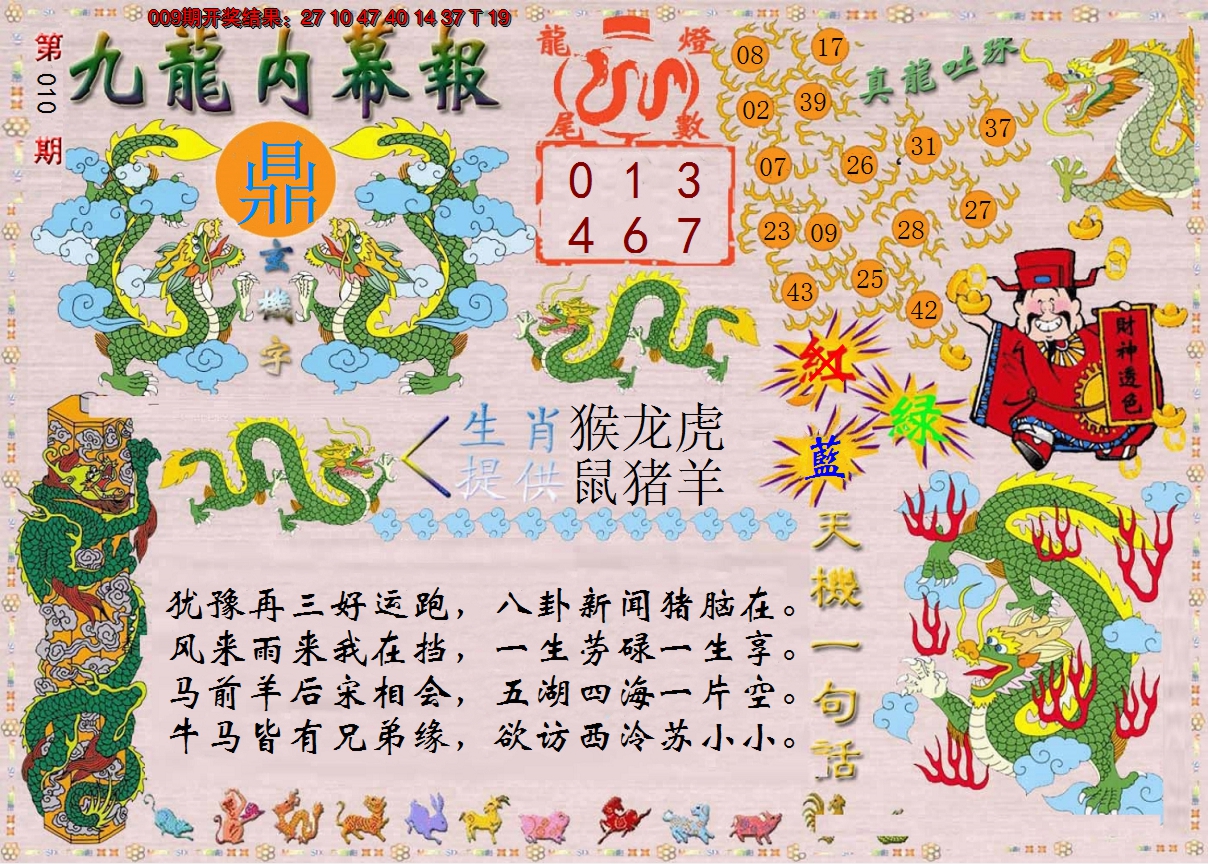 009期开奖结果：27 10 47 40 14 37 T 19
第010期
九龍内幕報
鼎
玄機字
龍燈
尾數
0 1 3
4 6 7
真龍吐珠
08 17
02 39
07 26 31 37
23 09 28 27
43 25 42
財神透色
紅
綠
藍
生肖
提供
猴龙虎
鼠猪羊
犹豫再三好运跑，八卦新闻猪脑在。
风来雨来我在挡，一生劳碌一生享。
马前羊后宋相会，五湖四海一片空。
牛马皆有兄弟缘，欲访西冷苏小小。
天機一句話